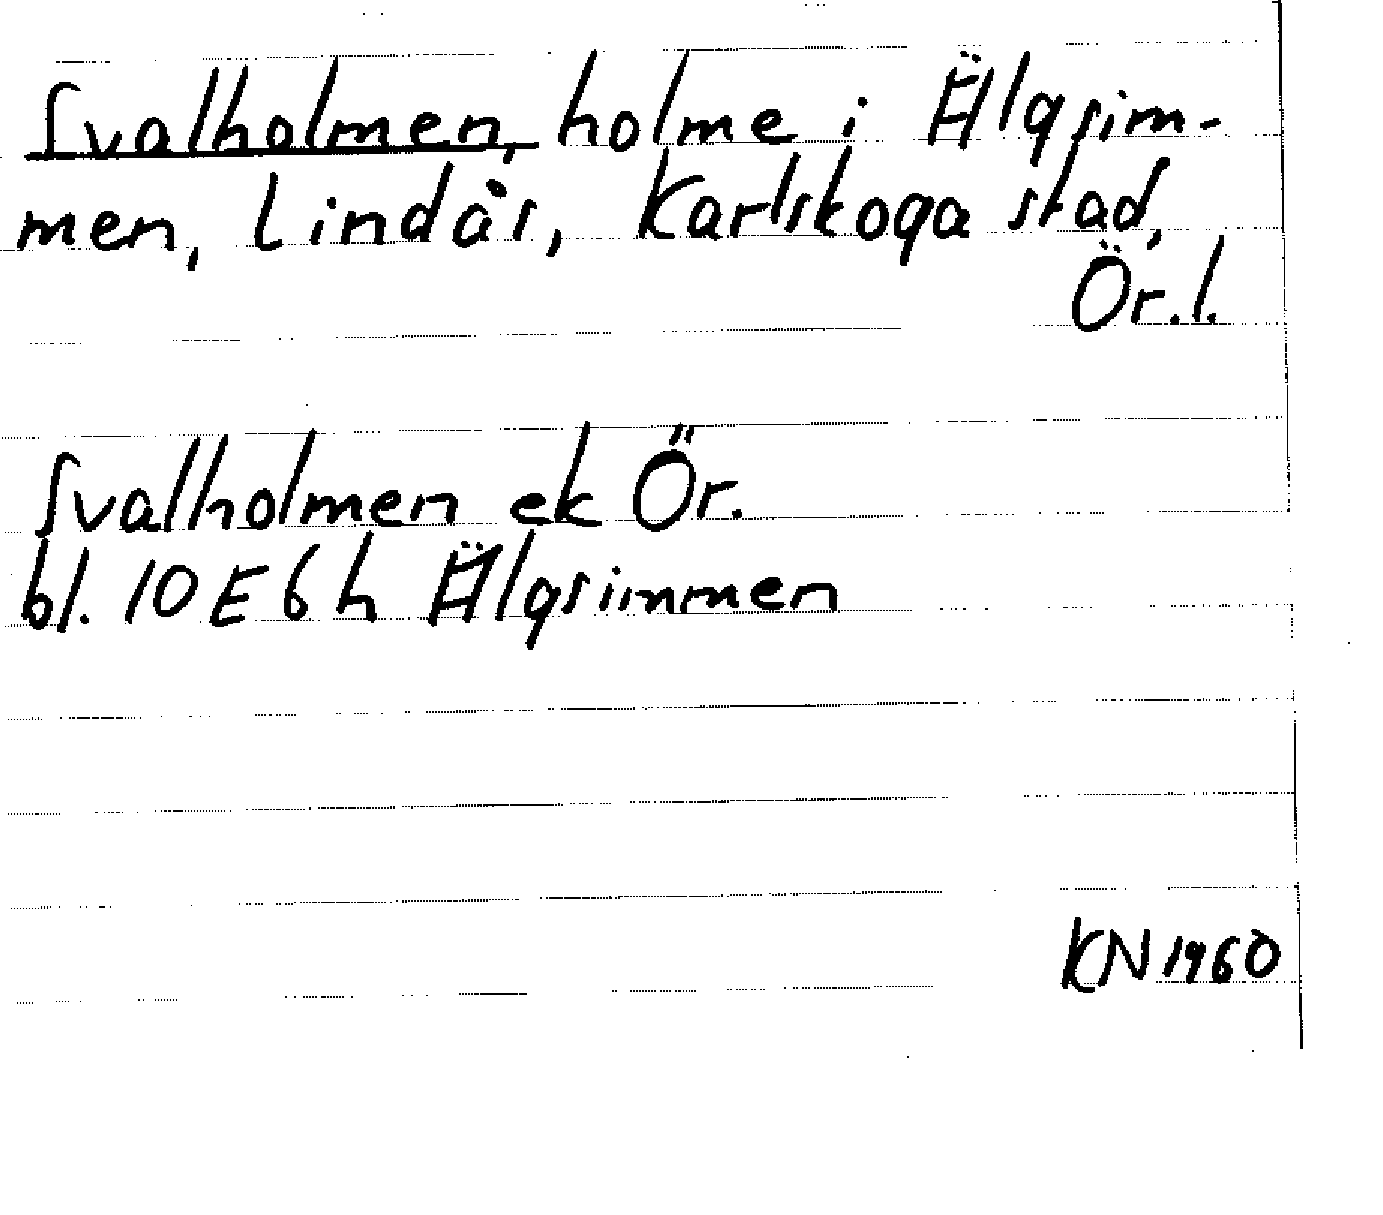 Svalholmen, holme i Älgsim-
men, Lindås, Karlskoga stad,
Ör.l.
Svalholmen ek Ör.
bl. 10 E 6 h Älgsimmen
KN 1960